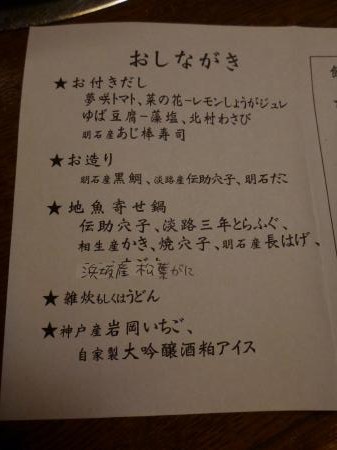 おしながき
★お付きだし
夢咲トマト、菜の花-レモンしょうがジュレ
ゆば豆腐-藻塩、北村わさび
明石産あじ棒寿司
★お造り
明石産黒鯛、淡路産伝助穴子、明石だこ
★地魚寄せ鍋
伝助穴子、淡路三年とらふぐ、
相生産かき、焼穴子、明石産長はげ、
浜坂産 松葉がに
★雑炊もしくはうどん
★神戸産岩岡いちご、
自家製大吟醸酒粕アイス